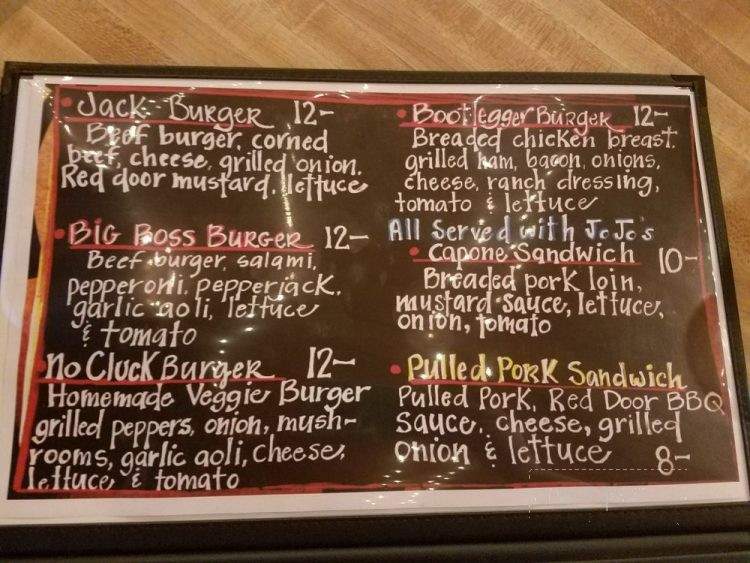 • Jack Burger 12-
Beef burger, corned
beef, cheese, grilled onion,
Red door mustard, lettuce
• BIG BOSS BURGER 12-
Beef burger, salami,
pepperoni, pepperjack,
garlic aoli, lettuce
& tomato
• No Cluck Burger 12-
Homemade Veggie Burger
grilled peppers, onion, mush-
rooms, garlic aoli, cheese,
lettuce & tomato
• Bootlegger Burger 12-
Breaded chicken breast,
grilled ham, bacon, onions,
cheese, ranch dressing,
tomato & lettuce
All Served with JoJo's
• Capone Sandwich 10-
Breaded pork loin,
mustard sauce, lettuce,
onion, tomato
• Pulled Pork Sandwich
Pulled Pork, Red Door BBQ
sauce, cheese, grilled
onion & lettuce 8-